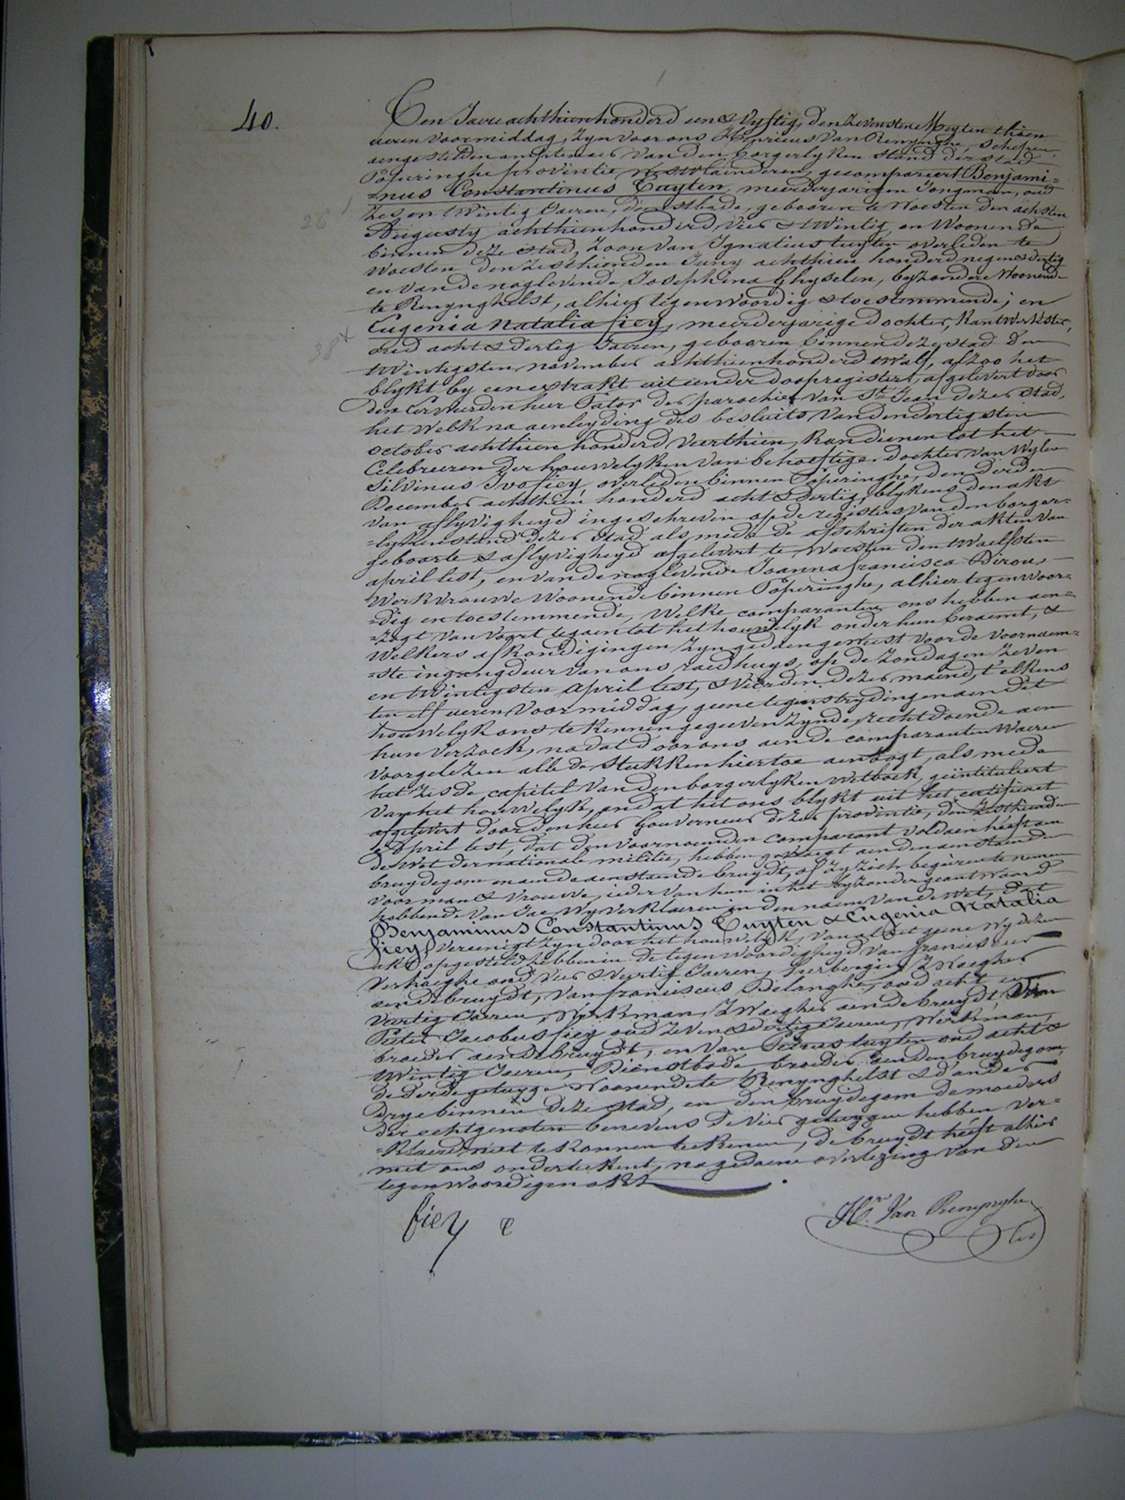 40.
Den Jaere achthienhonderd een & vyftig, den zevensten Meÿ ten thien
ueren voormiddag, zyn voor ons Henricus Van Renynghe, Schepen,
aengestelden amptenaer van den borgerlyken stand der stad
Poperinghe provintie Westvlaenderen, gecompareert Benjami=
=nus Constantinus Tuyten, meerderjarigen Jongman, oud
zes en twintig Jaeren, geboren te Woesten den achsten
26
Augusty achthienhonderd vier & twintig, en woonende
binnen deze stad, zoon van Ignatius tuyten overleden te
Woesten den zesthienden Juny achthien honderd negen & dertig
en van de naglevende Josephina Ghyselen, byzondere woonende
te Renynghelst, alhier tegenwoordig & toestemmende; en
Eugenia Natalia fieÿ, meerderjarige dochter, kantwerkster,
38
oud acht & dertig Jaeren, geboren binnen deze stad den
twintigsten november achthienhonderd twalf, alzoo het
blykt by een extrakt uit een der doopregisters, afgelevert door
den Eerweerden heer Pastor der parochie van St Jean dezer stad,
het welk na aenleyding des besluits van den dertigsten
october achthien honderd veerthien, kan dienen tot het
Celebreeren der houwelyken van behoeftige, dochter van wylen
Silvinus Ivo fieÿ, overleden binnen Poperinghe, den derden
December achthien honderd acht & dertig, blykens den akt
van aflyvigheyd ingeschreven op de registers van den borger=
=lyken stand dezer stad als mede de afschriften der akten van
geboorte & aflyvigheyd afgelevert te Woesten den twaelfsten
april lest, en van de naglevende Joanna francisca Dirou,
werkvrouwe woonende binnen Poperinghe, alhier tegenwoor=
=dig en toestemmende, welke comparanten ons hebben aen=
=zogt van voort te gaen tot het houwelyk onder hun beraemt, &
welkers afkondigingen zyn gedaen geweest voor de voornaem=
=ste ingangdeur van ons raedhuys, op de zondagen zeven
en twintigsten april lest, & vierden dezer maend, t'elkens
ten elf ueren voormiddag, geene tegenstrydingen aen dit
houwelyk ons te kennen gegeven zynde, recht doende aen
hun verzoek, na dat door ons aen de comparanten waeren
voorgelezen alle de stukken hiertoe aenbogt, als mede
het zesde capitel van den borgerlyken wetboek, geïntituleert
van het houwelyk, en dat het ons blykt uit het certificaet
afgelevert door den heer Gouverneur dezer provintie, den
april lest, dat den voornoemden comparant voldaen heeft aen
de wet der nationale militie, hebben gevraegt aen den aenstaenden
bruydegom en aen de aenstaende bruydt, of zy zich begeiren te nemen
voor man & vrouwe, ieder van hun in het byzonder geantwoord
hebbende van Jae, wy verklaeren in den naem van de wet, dat
Benjaminus Constantinus Tuyten & Eugenia Natalia
fieÿ vereenigt zyn door het houwelyk, van al het geene wy dezen
akt opgesteld hebben in de tegenwoordigheyd van franciscus
Verhaeghe oud vier & veertig Jaeren, herbergier, zwaegher
aen de bruydt, van franciscus Delanghe, oud acht en
veertig Jaeren, werkman, zwaegher aen de bruydt, van
Pieter Jacobus fieÿ oud zeven & dertig Jaeren, werkman,
broeder aen de bruydt, en van tuyten oud acht &
twintig Jaeren, Dienstbode broeder aen den bruydegom,
de derde getuyge woonende te Renynghelst & d'andere
drye binnen deze stad, en den bruydegom de moeders
der echtgenoten benevens de vier getuygen hebben ver=
=klaerd niet te konnen teekenen, de bruydt heeft alhier
met ons onderteekent, na gedaene overlezing van den
tegenwoordigen akt.
fieÿ e
Hri Van Renynghe